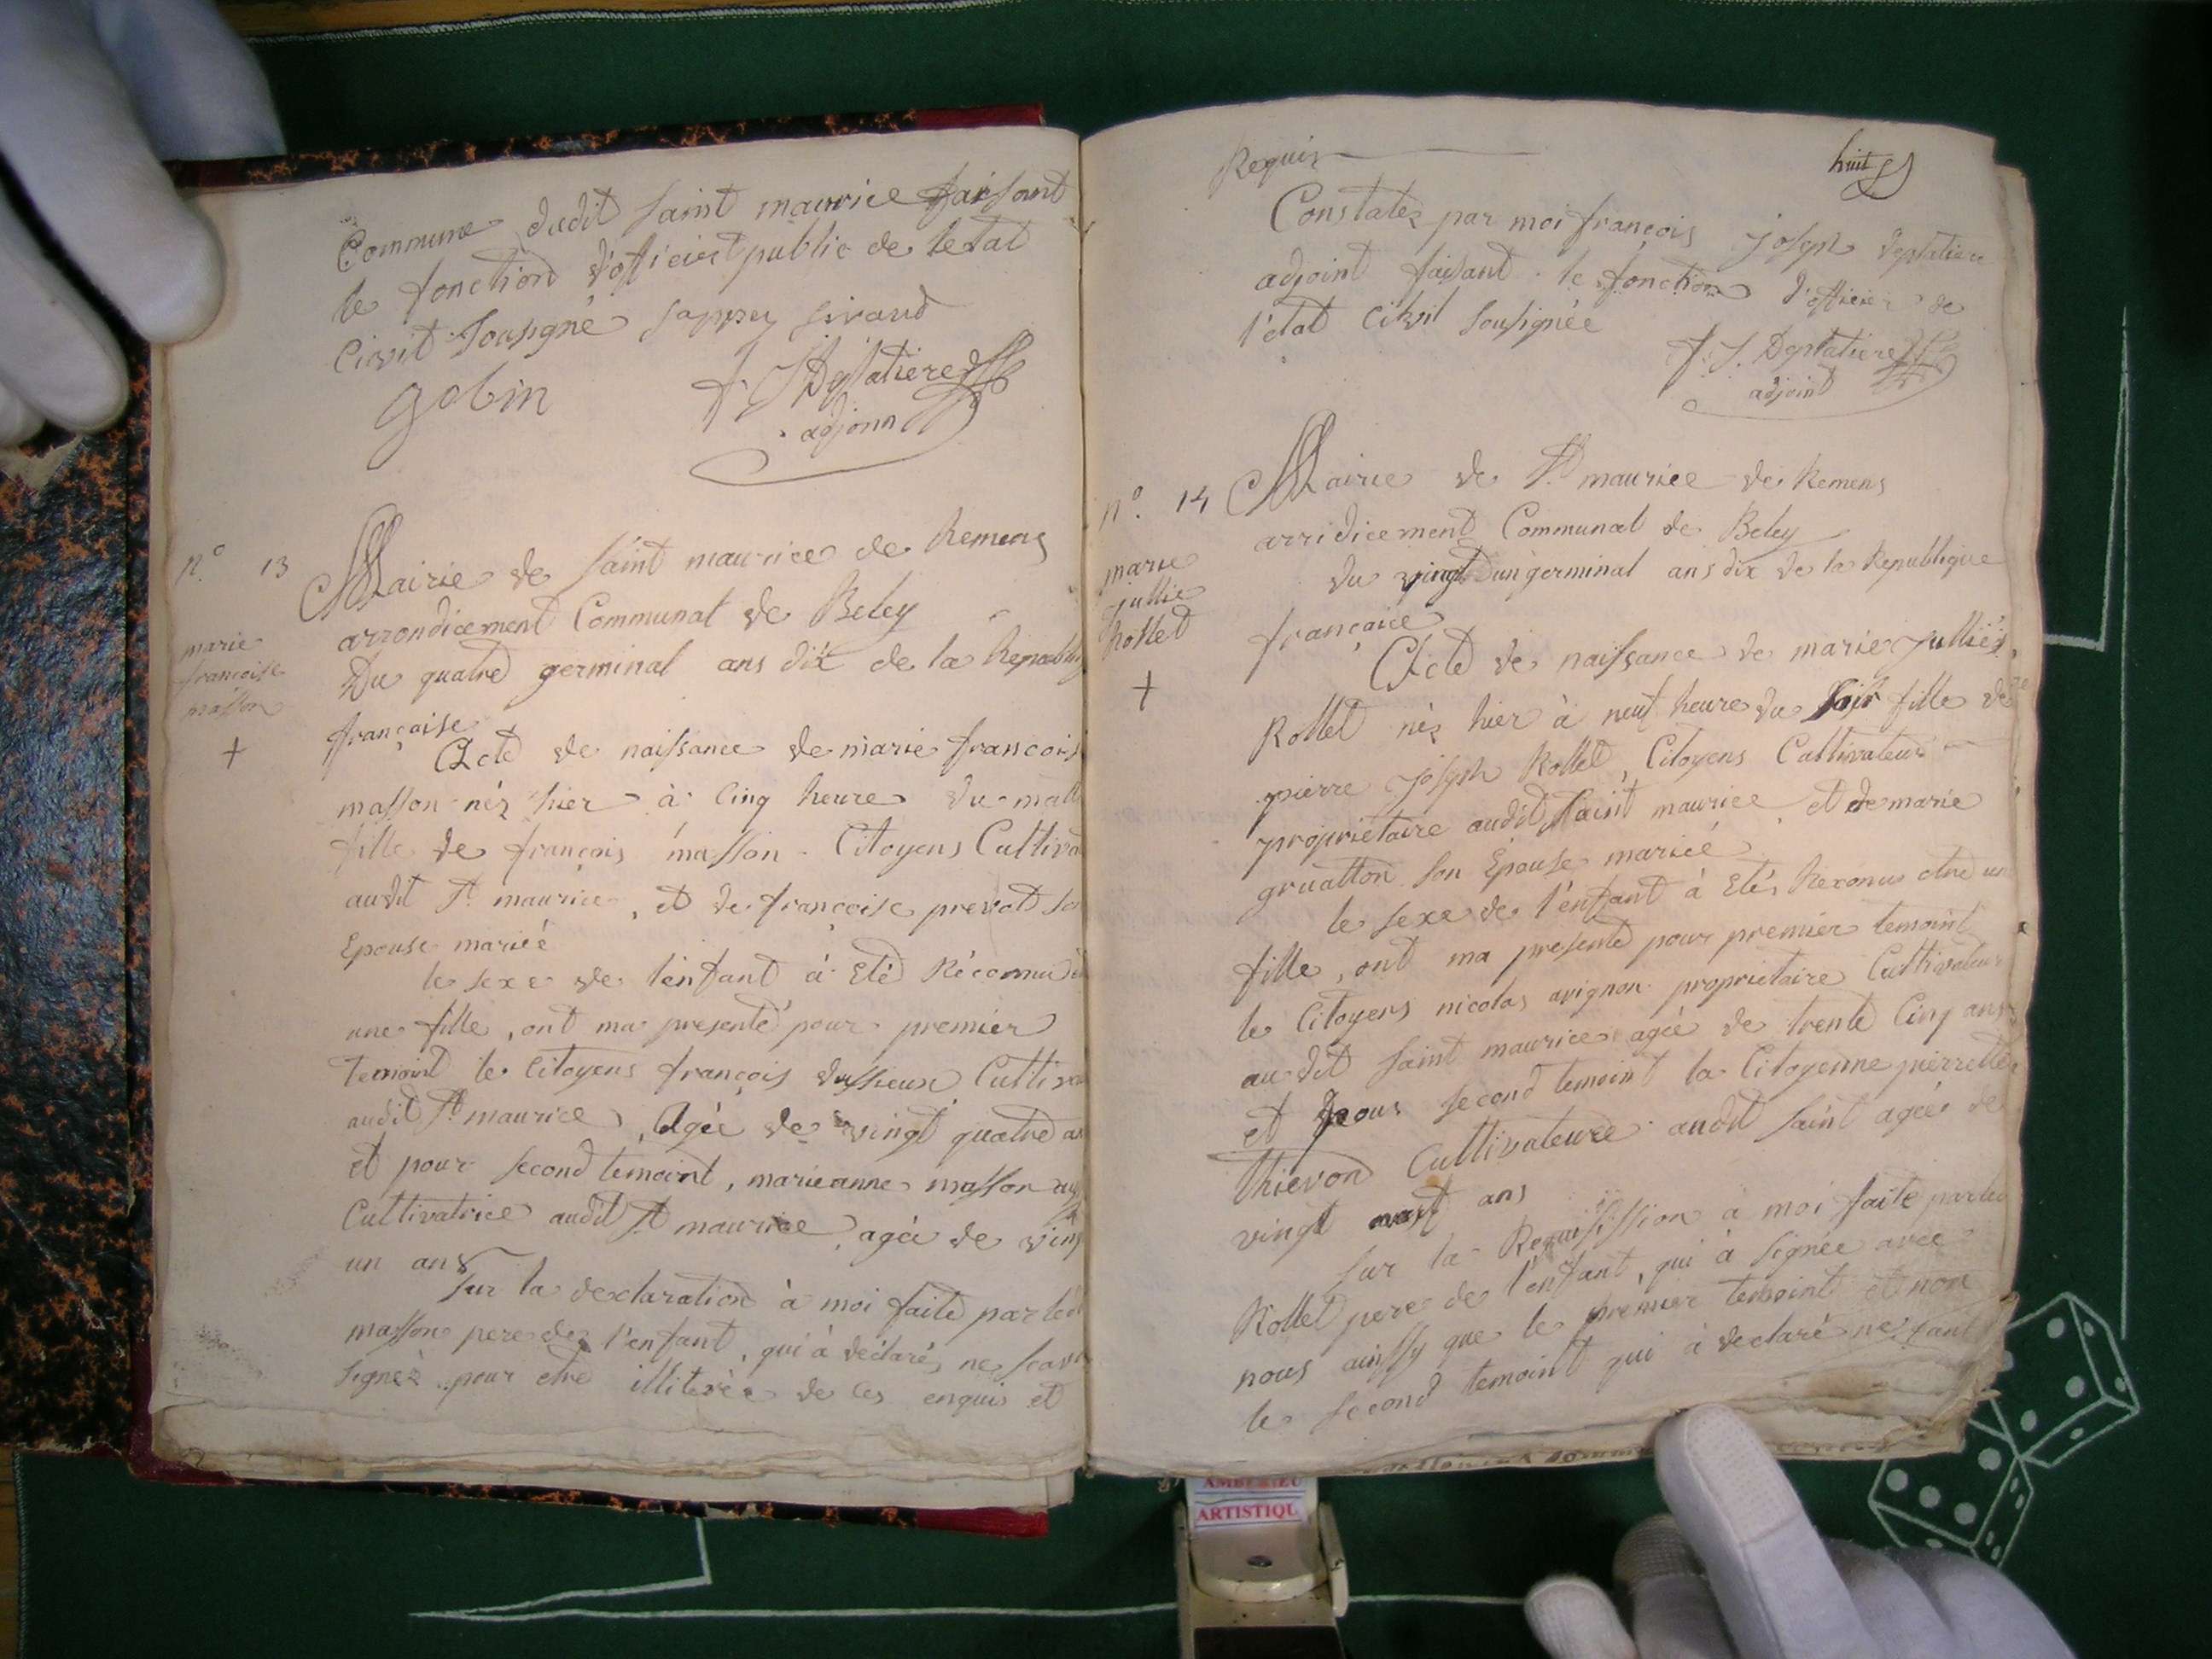 Commune dudit saint maurice faisant
le fonction d'officiert public de letat
Civit sousigné sappey siraud
gobin
f. J Deplatiere
adjoint
n.o 13
marie
francoise
masson
+
Mairie de saint maurice de Remens
arrondicement Communal de Beley
Du quatre germinal ans dix de la Republiq
française
Acte de naissance de marie francois
masson néz hier à Cinq heure du mati
fille de françois masson Citoyens Cultiva
audit St maurice, et de francoise prevot so
Epouse mariéé
le sexe de l'enfant à Eté Réconnu
une fille, ont ma presenté pour premier
temoint le Citoyens françois dussieux Cultiva
audit St maurice, Agéé de vingt quatre an
et pour second temoint, marieanne masson
Cultivatrice audit St maurice agéé de ving
un ans
sur la declaration à moi faite par led
masson pere dez l'enfant, qui à déclaré, ne scav
signéz pour etre illiteréé de Ces enquis et
Requis
huit
Constatez par moi françois Joseph deplatiere
adjoint faisant le fonction d'officier de
l'etat Civil sousignéé
f. J. Deplatiere
adjoint
n.o 14
marie
jullie
Rollet
+
Mairie de St maurice de Remens
arridicement Communal de Beley
du vingt un germinal ans dix de la Republique
françaice
Acte de naissance de marie Julliéz
Rollet néz hier à neuf heure du soir fille de
pierre Joseph Rollet, Citoyens Cultivateur
propriétaire audit saint maurice et de marie
gruatton son Epouse mariéé
le sexe de l'enfant à Etéz Reconus etre un
fille, ont ma presenté pour premier temoint
le Citoyens nicolas avignon propriétaire Cultivateur
au dit saint maurice agéé de trente Cinq ans
et pour second temoint la Citoyenne pierrette
thievon Cultivateure audit saint agéé de
vingt ans
sur la Requisission à moi faite par led
Rollet pere de l'enfant, qui à signée avec
nous ainssy que le premier temoint et non
le second temoint qui à declaré ne
AMBERIEU
ARTISTIQU